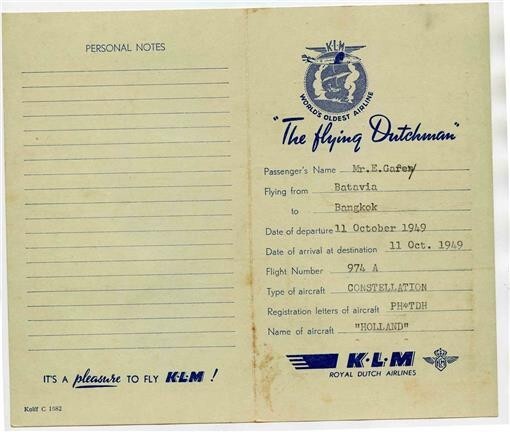 PERSONAL NOTES
IT'S A pleasure TO FLY K·L·M !
Kolff C 1582
K·L·M
WORLD'S OLDEST AIRLINE
"The flying Dutchman"
Passenger's Name Mr.E.Gafer/
Flying from Batavia
to Bangkok
Date of departure 11 October 1949
Date of arrival at destination 11 Oct. 1949
Flight Number 974 A
Type of aircraft CONSTELLATION
Registration letters of aircraft PH*TDH
Name of aircraft "HOLLAND"
K·L·M
ROYAL DUTCH AIRLINES
KLM